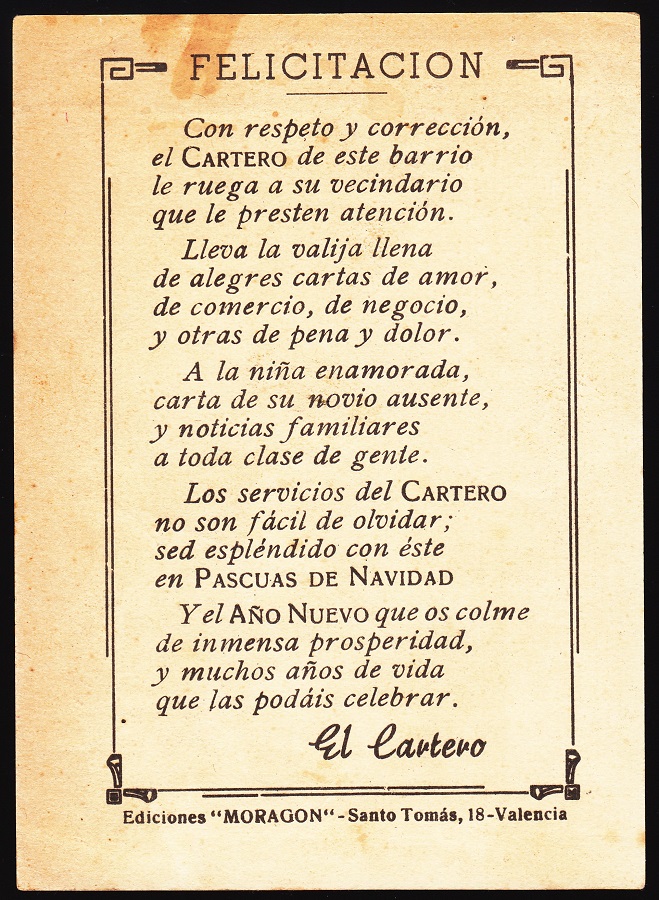 FELICITACION
Con respeto y corrección,
el CARTERO de este barrio
le ruega a su vecindario
que le presten atención.
Lleva la valija llena
de alegres cartas de amor,
de comercio, de negocio,
y otras de pena y dolor.
A la niña enamorada,
carta de su novio ausente,
y noticias familiares
a toda clase de gente.
Los servicios del CARTERO
no son fácil de olvidar;
sed espléndido con éste
en PASCUAS DE NAVIDAD
Y el AÑO NUEVO que os colme
de inmensa prosperidad,
y muchos años de vida
que las podáis celebrar.
El Cartero
Ediciones "MORAGON" - Santo Tomás, 18 - Valencia